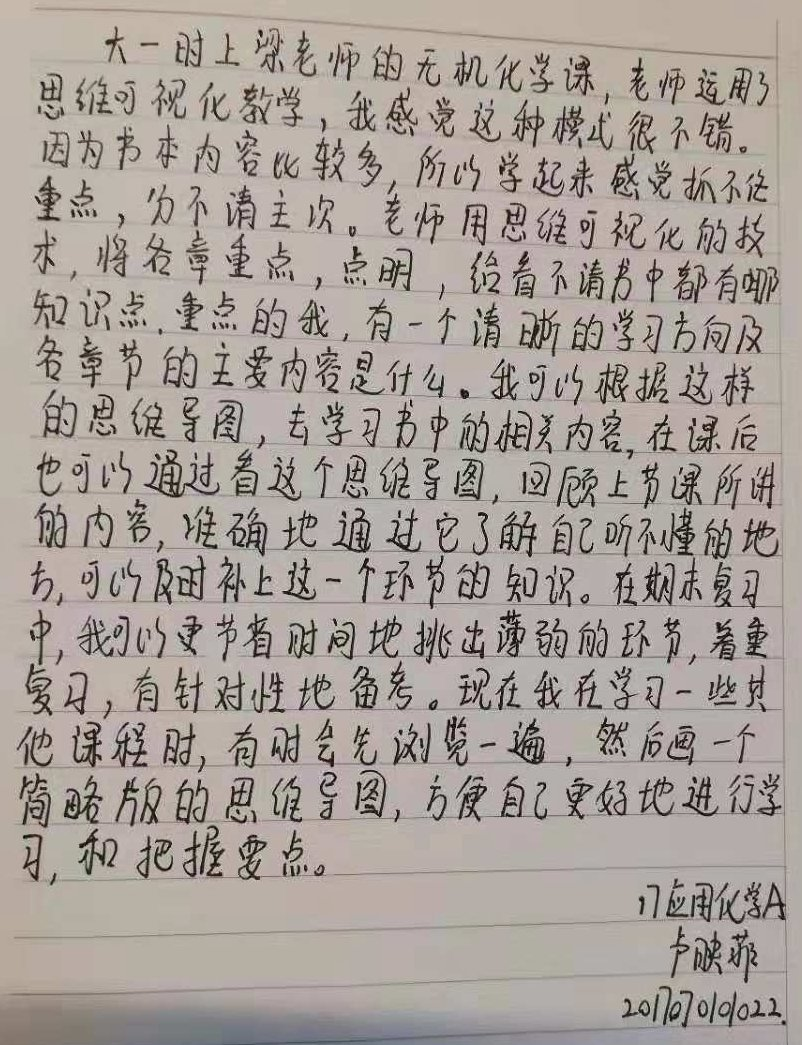 大一时上梁老师的无机化学课，老师运用了
思维可视化教学，我感觉这种模式很不错。
因为书本内容比较多，所以学起来感觉抓不住
重点，分不清主次。老师用思维可视化的技
术，将各章重点，点明，给看不清书中都有哪
知识点、重点的我，有一个清晰的学习方向及
各章节的主要内容是什么。我可以根据这样
的思维导图，去学习书中的相关内容，在课后
也可以通过看这个思维导图，回顾上节课所讲
的内容，准确地通过它了解自己听不懂的地
方，可以及时补上这一个环节的知识。在期末复习
中，我可以更节省时间地挑出薄弱的环节，着重
复习，有针对性地备考。现在我在学习一些其
他课程时，有时会先浏览一遍，然后画一个
简略版的思维导图，方便自己更好地进行学
习，和把握要点。
17应用化学A
卢映菲
201707010022.